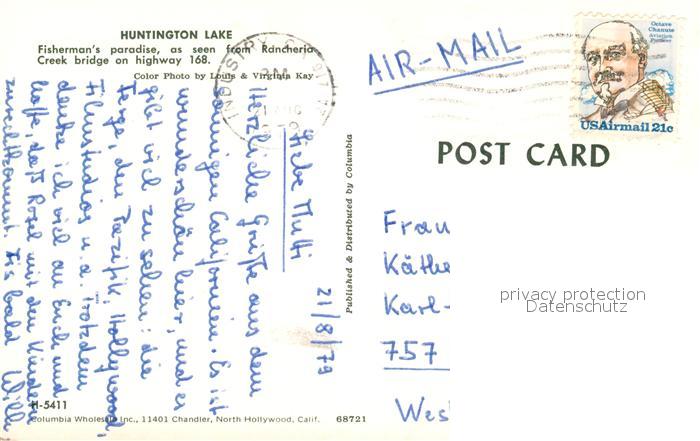 HUNTINGTON LAKE
Fisherman's paradise, as seen from Rancheria
Creek bridge on highway 168.
Color Photo by Louis & Virginia Kay
INDUSTRY, CA
PM
AUG
AIR-MAIL
Octave
Chanute
Aviation
Pioneer
USAirmail 21c
POST CARD
21/8/79
Liebe Mutti
Herzliche Grüße aus dem
sonnigen Californien. Es ist
wunderschön hier, und es
gibt viel zu sehen: die
Berge, den Pazifik, Hollywood,
Filmstudios u.a. Trotzdem
denke ich viel an Euch und
hoffe, daß Rosel mit den Kindern
zurechtkommt. Bis bald Willi
Published & Distributed by Columbia
Frau
Käthe
Karl-
757
Wes
privacy protection
Datenschutz
H-5411
Columbia Wholesale Inc., 11401 Chandler, North Hollywood, Calif. 68721